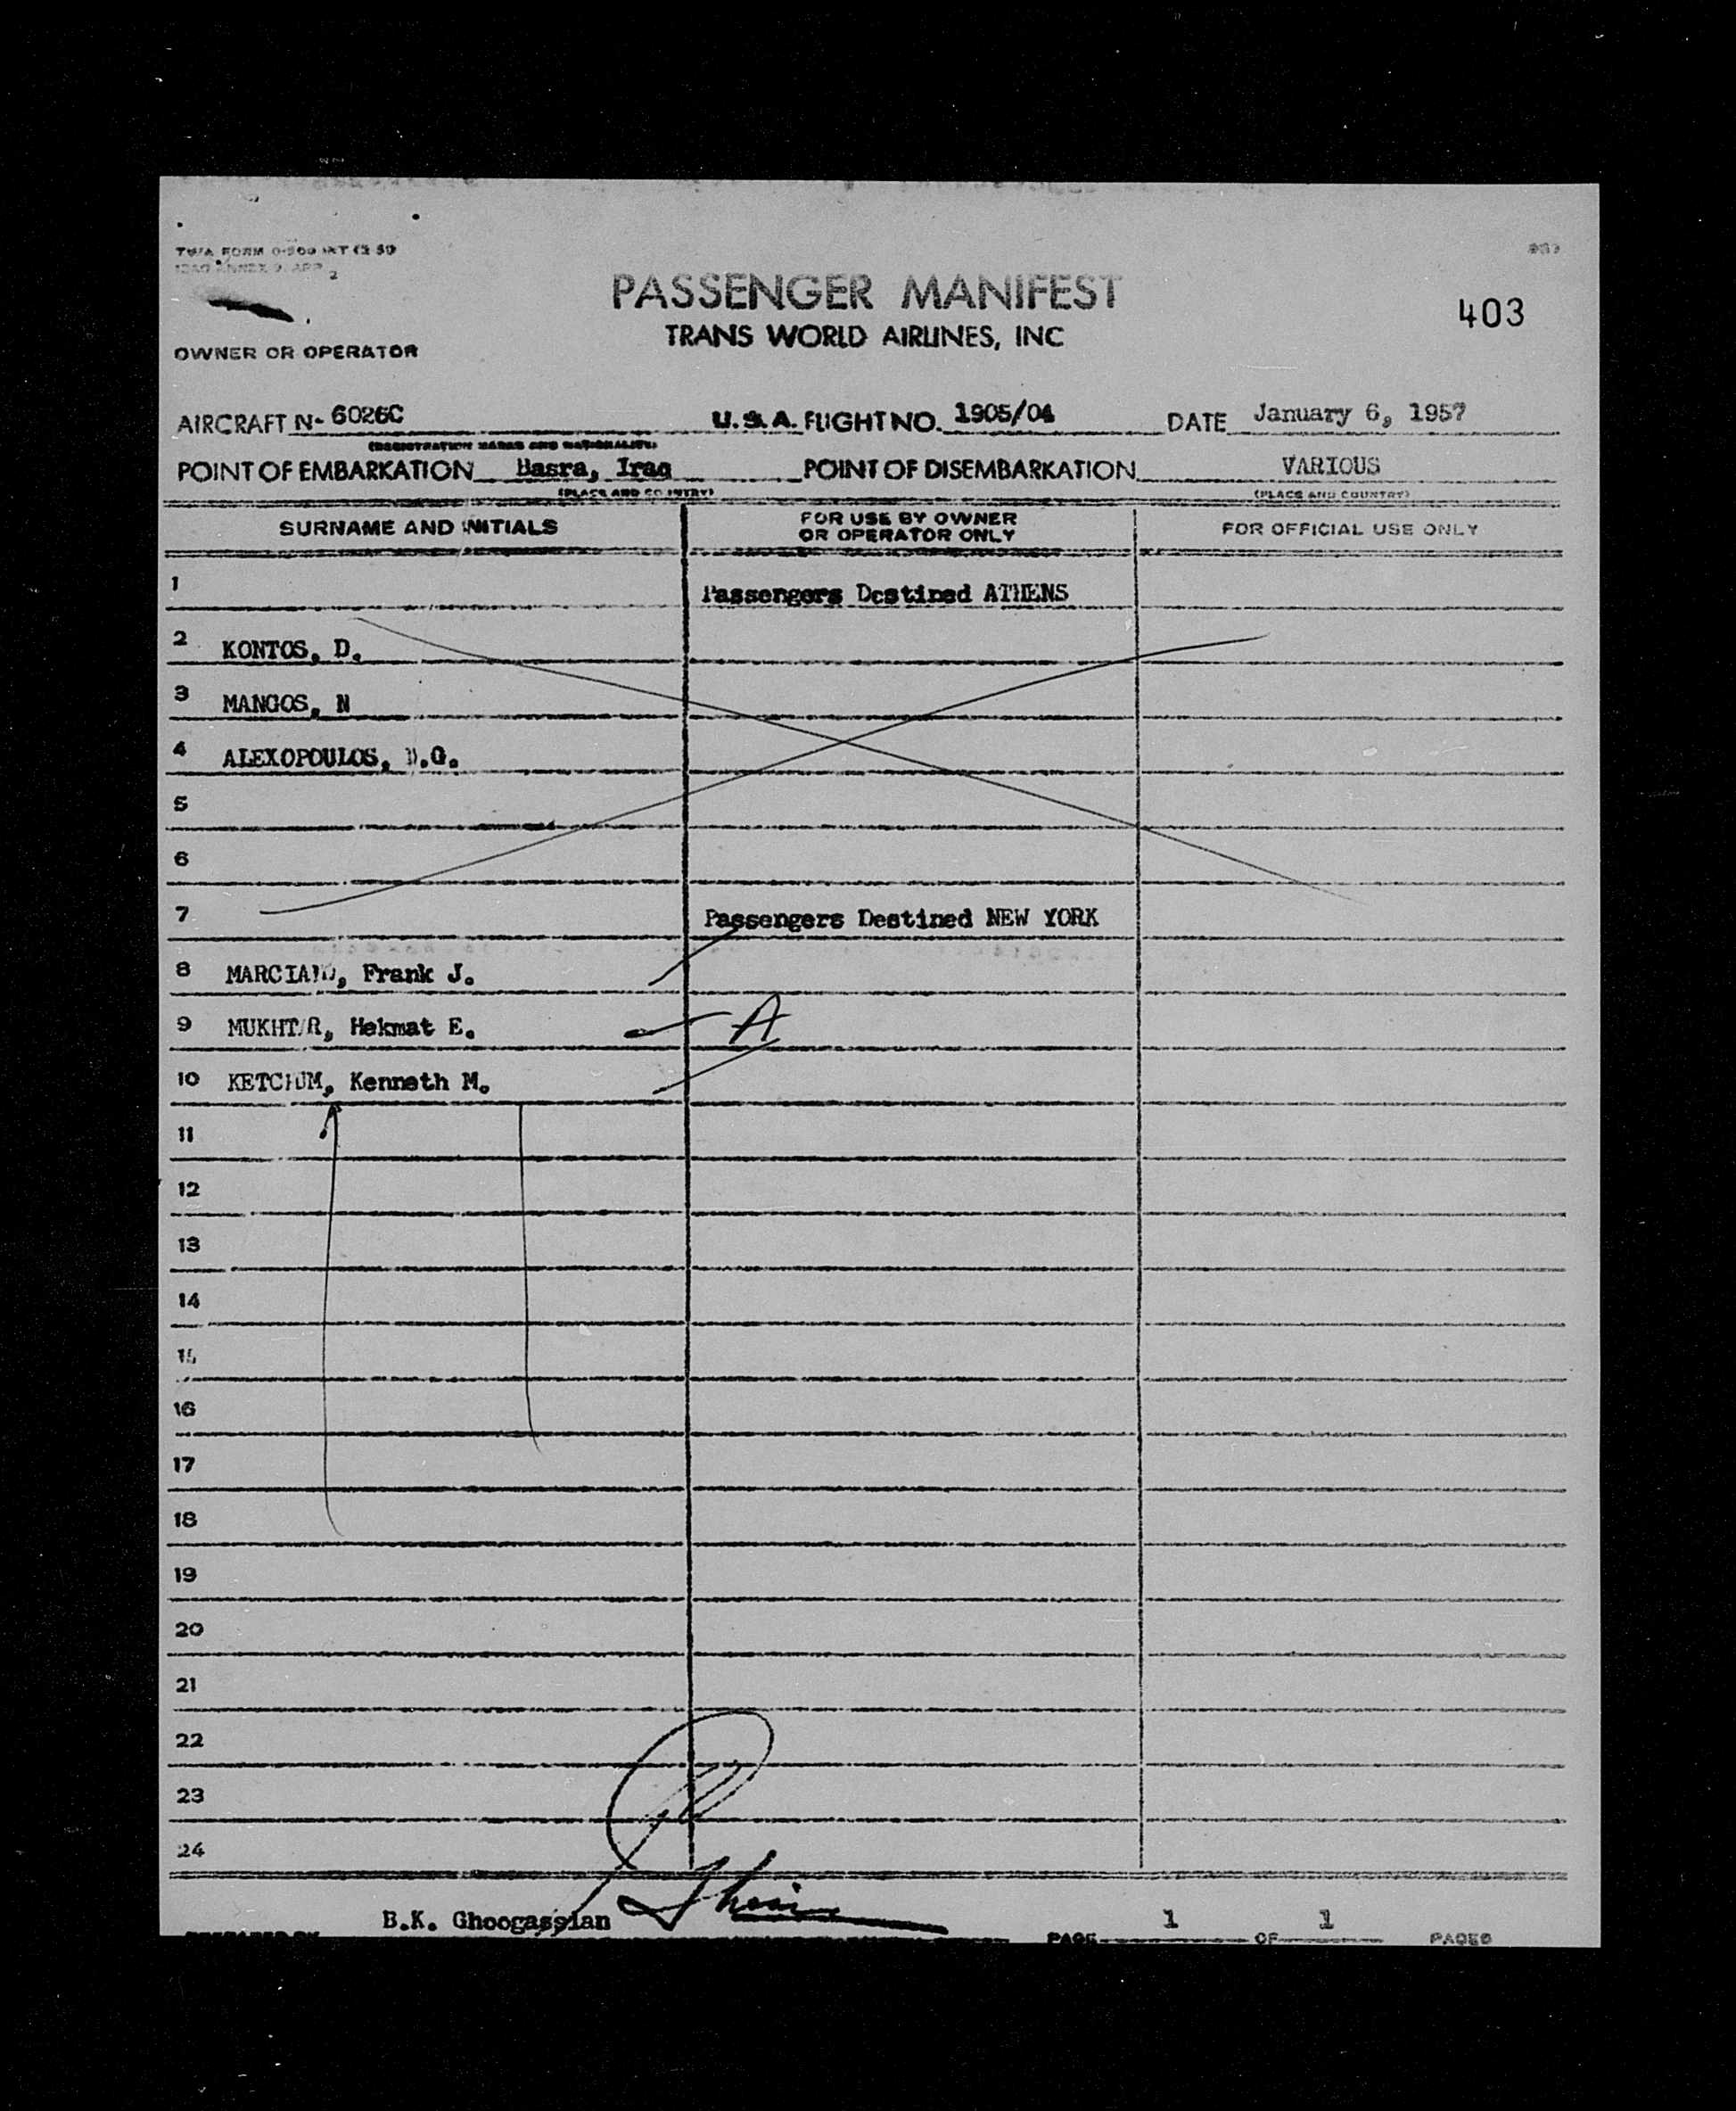 TWA FORM
2
403
PASSENGER MANIFEST
TRANS WORLD AIRLINES, INC
OWNER OR OPERATOR
AIRCRAFT N- 6026C U.S.A. FLIGHT NO. 1905/04 DATE January 6, 1957
(REGISTRATION MARKS AND NATIONALITY)
POINT OF EMBARKATION Basra, Iraq POINT OF DISEMBARKATION VARIOUS
(PLACE AND COUNTRY) (PLACE AND COUNTRY)
SURNAME AND INITIALS FOR USE BY OWNER OR OPERATOR ONLY FOR OFFICIAL USE ONLY
1 Passengers Destined ATHENS
2 KONTOS, D.
3 MANGOS, N
4 ALEXOPOULOS, D.G.
5
6
7 Passengers Destined NEW YORK
8 MARCIANO, Frank J.
9 MUKHTAR, Hekmat E. A
10 KETCHUM, Kenneth M.
11
12
13
14
15
16
17
18
19
20
21
22
23
24
B.K. Ghoogassian
PREPARED BY PAGE 1 OF 1 PAGES